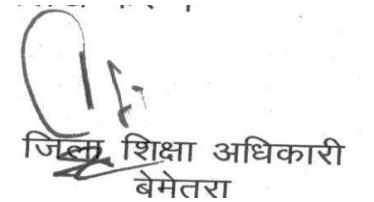 जिला शिक्षा अधिकारी
बेमेतरा